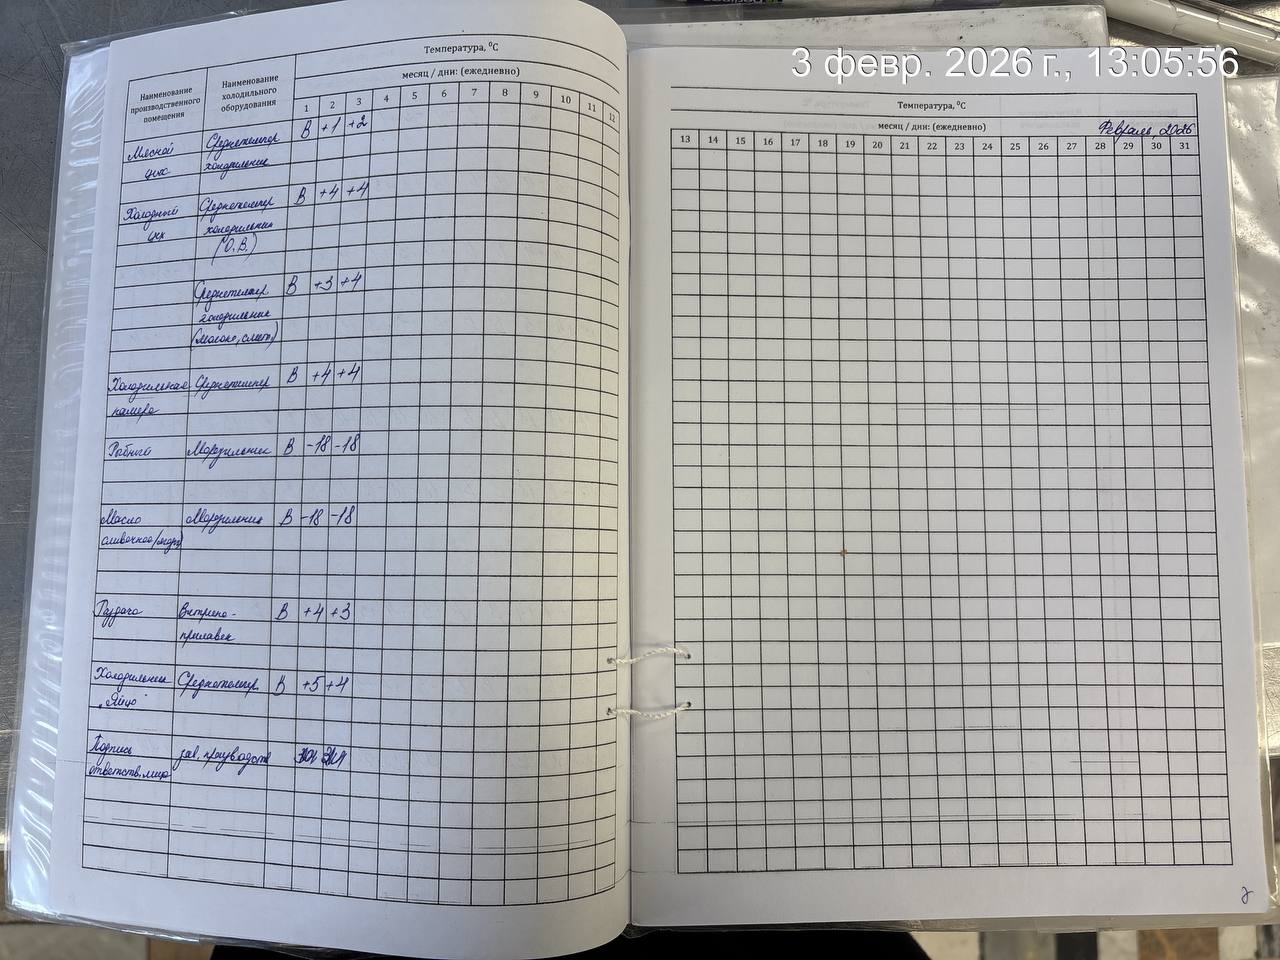 3 февр. 2026 г., 13:05:56
Температура, ⁰С
Наименование производственного помещения
Наименование холодильного оборудования
месяц / дни: (ежедневно)
1 2 3 4 5 6 7 8 9 10 11 12
Мясной Среднетемпер В +1 +2
цех холодильник
Холодный Среднетемпер В +4 +4
цех холодильник
(О.В.)
Среднетемпер В +3 +4
холодильник
(молоко, смет)
Холодильная Среднетемпер В +4 +4
камера
Рыбный Морозильник В -18 -18
Масло Морозильник В -18 -18
сливочное/
Раздача Витрина- В +4 +3
прилавок
Холодильник Среднетемпер. В +5 +4
"Яйцо"
Подпись зав. производств
ответств. лица
Температура, ⁰С
месяц / дни: (ежедневно) Февраль, 2026
13 14 15 16 17 18 19 20 21 22 23 24 25 26 27 28 29 30 31
2